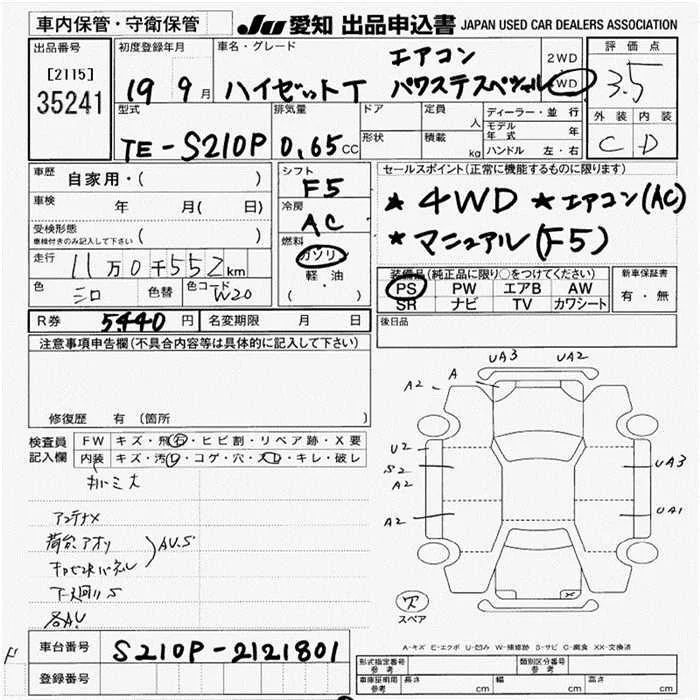 車内保管・守衛保管
JU 愛知 出品申込書 JAPAN USED CAR DEALERS ASSOCIATION
出品番号
[2115]
35241
初度登録年月
19 9月
車名・グレード
ハイゼットT エアコン
パワステスペシャル
2WD
4WD
評価点
3.5
外装 内装
C D
型式
TE-S210P
排気量
0.65cc
ドア
形状
定員
人
積載
kg
ディーラー・並行
モデル年式 年
ハンドル 左・右
車歴
自家用・( )
車検
年 月( 日)
受検形態
車検付きのみ記入して下さい ( )
走行
11万0千552km
色
シロ
色替
色コード
W20
シフト
F5
冷房
AC
燃料
ガソリン
軽油
( ・ )
セールスポイント(正常に機能するものに限ります)
★4WD ★エアコン(AC)
★マニュアル(F5)
装備品(純正品に限り○をつけてください)
PS PW エアB AW
SR ナビ TV カワシート
新車保証書
有・無
後日品
R券 5440円 名変期限 月 日
注意事項申告欄(不具合内容等は具体的に記入して下さい)
修復歴 有(箇所 )
検査員
記入欄
FW キズ・飛石・ヒビ割・リペア跡・X要
内装 キズ・汚れ・コゲ・穴・スレ・キレ・破レ
アンテナX
荷台アオリ
キャビン内パネル
AU.S
下廻りS
各AU
UA3 UA2
A
A2
U2
S2
A2
A2
UA3
UA1
X
欠
スペア
A-キズ E-エクボ U-凹み W-補修跡 S-サビ C-腐食 XX-交換済
車台番号
S210P-2121801
登録番号
形式指定番号
参考
類別区分番号
参考
車庫証明用
参考
長さ cm 幅 cm 高さ cm